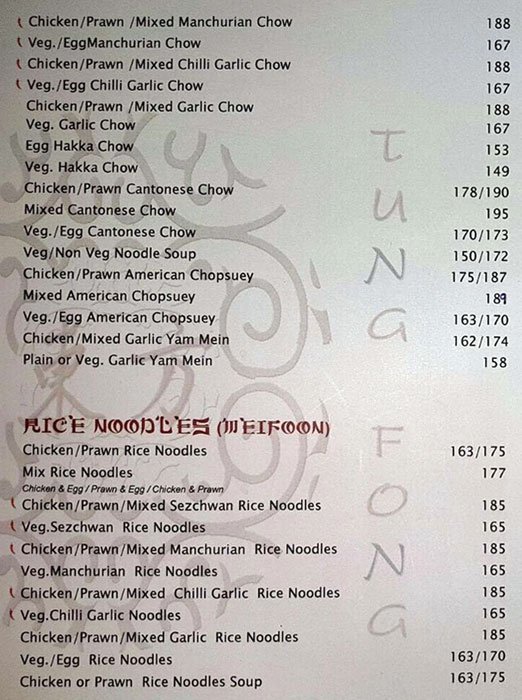 Chicken/Prawn /Mixed Manchurian Chow 188
Veg./EggManchurian Chow 167
Chicken/Prawn /Mixed Chilli Garlic Chow 188
Veg./Egg Chilli Garlic Chow 167
Chicken/Prawn /Mixed Garlic Chow 188
Veg. Garlic Chow 167
Egg Hakka Chow 153
Veg. Hakka Chow 149
Chicken/Prawn Cantonese Chow 178/190
Mixed Cantonese Chow 195
Veg./Egg Cantonese Chow 170/173
Veg/Non Veg Noodle Soup 150/172
Chicken/Prawn American Chopsuey 175/187
Mixed American Chopsuey 189
Veg./Egg American Chopsuey 163/170
Chicken/Mixed Garlic Yam Mein 162/174
Plain or Veg. Garlic Yam Mein 158
TUNG FONG
RICE NOODLES (WEIFOON)
Chicken/Prawn Rice Noodles 163/175
Mix Rice Noodles 177
Chicken & Egg / Prawn & Egg / Chicken & Prawn
Chicken/Prawn/Mixed Sezchwan Rice Noodles 185
Veg.Sezchwan Rice Noodles 165
Chicken/Prawn/Mixed Manchurian Rice Noodles 185
Veg.Manchurian Rice Noodles 165
Chicken/Prawn/Mixed Chilli Garlic Rice Noodles 185
Veg.Chilli Garlic Noodles 165
Chicken/Prawn/Mixed Garlic Rice Noodles 185
Veg./Egg Rice Noodles 163/170
Chicken or Prawn Rice Noodles Soup 163/175